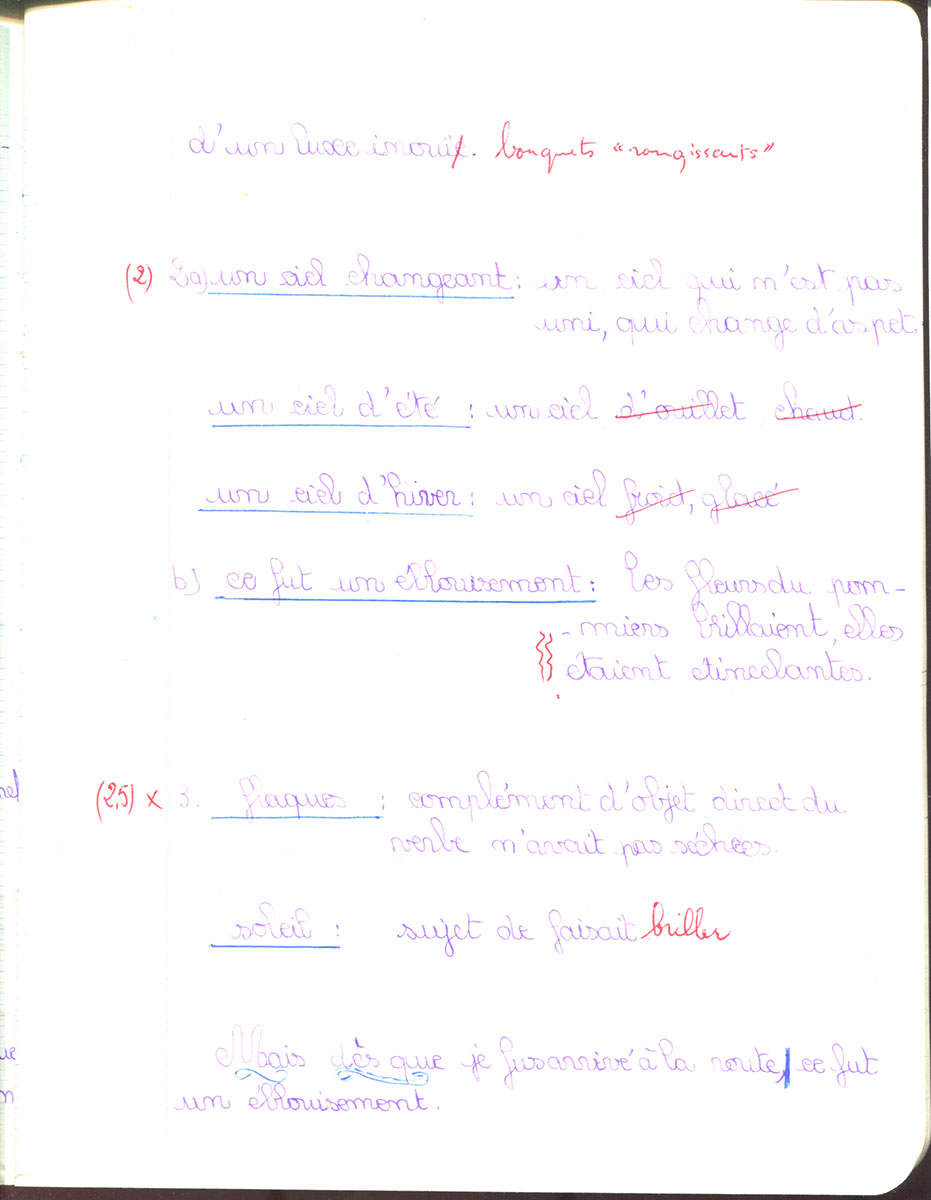 d'un luxe inouï. bouquets "rougissants"
(2) 2a) un ciel changeant : un ciel qui n'est pas
uni, qui change d'aspet.
un ciel d'été : un ciel d'ouillet chaud.
un ciel d'hiver : un ciel froid, glacé
b) ce fut un éblouisement : Les fleurs du pom-
-miers brillaient, elles
étaient étincelantes.
(2,5) x 3. flaques : complément d'objet direct du
verbe n'avait pas séchées.
soleil : sujet de faisait briller
Mais dès que je fus arrivé à la route, ce fut
un éblouisement.